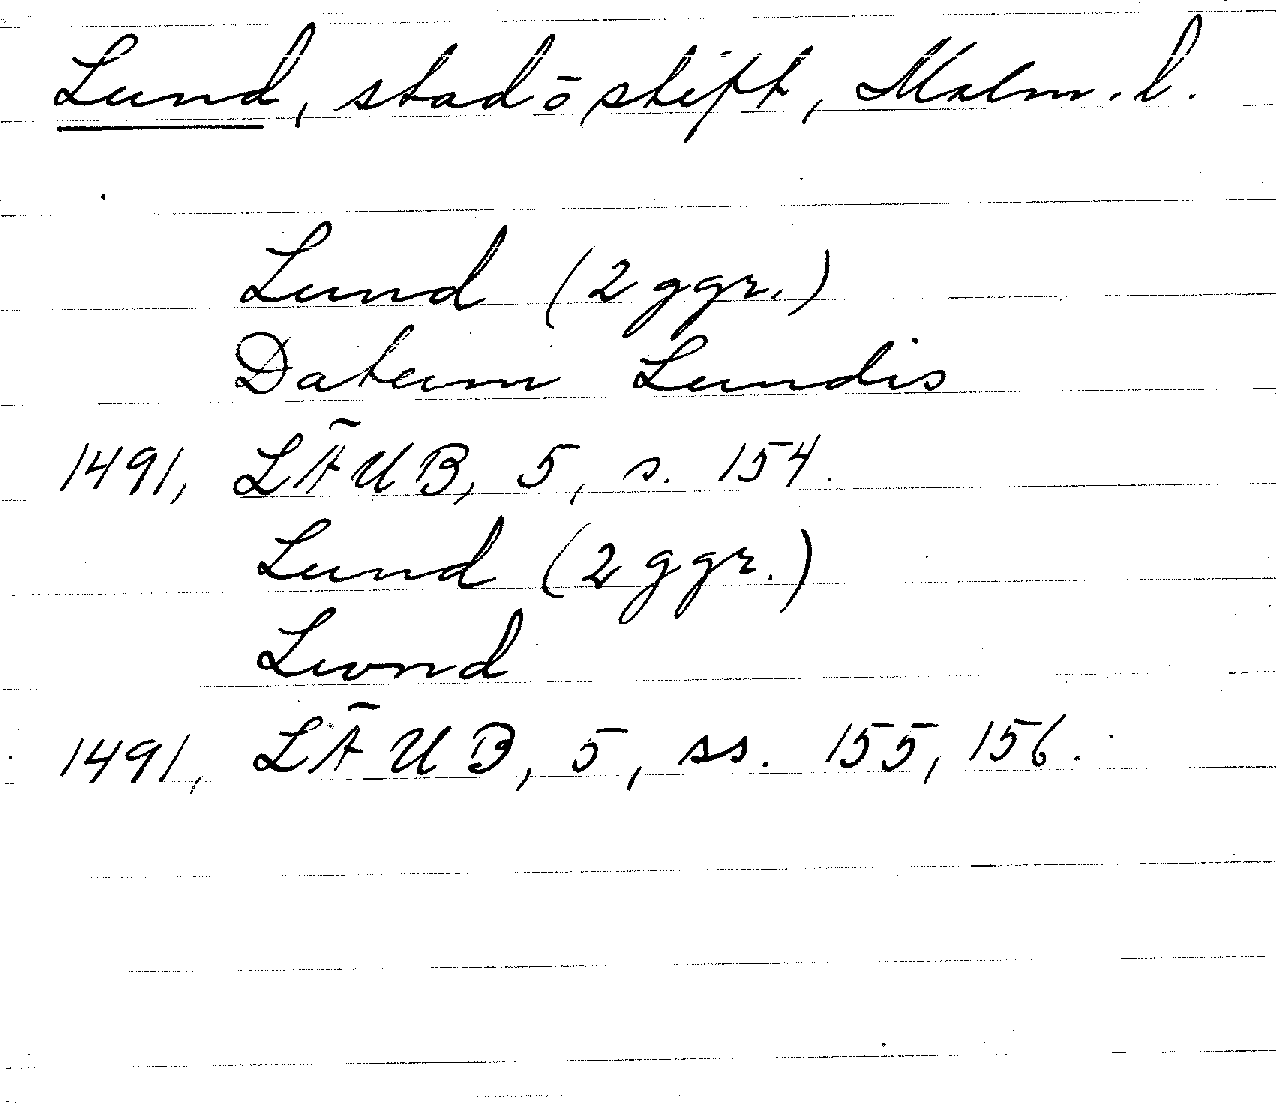 Lund, stad ō stift, Malm. l.
Lund (2 ggr.)
Datum Lundis
1491, LÄUB, 5, s. 154.
Lund (2 ggr.)
Lwnd
1491, LÄUB, 5, ss. 155, 156.